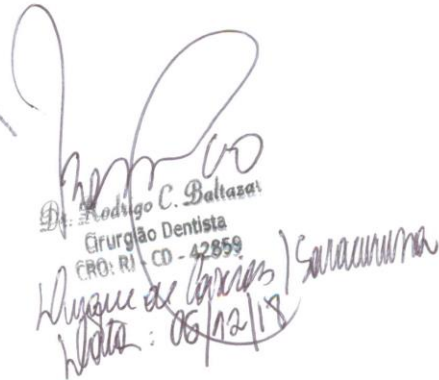 Dr. Rodrigo C. Baltazar
Cirurgião Dentista
CRO: RJ - CD - 42859
Duque de Caxias / Saracuruna
Data: 06/12/18